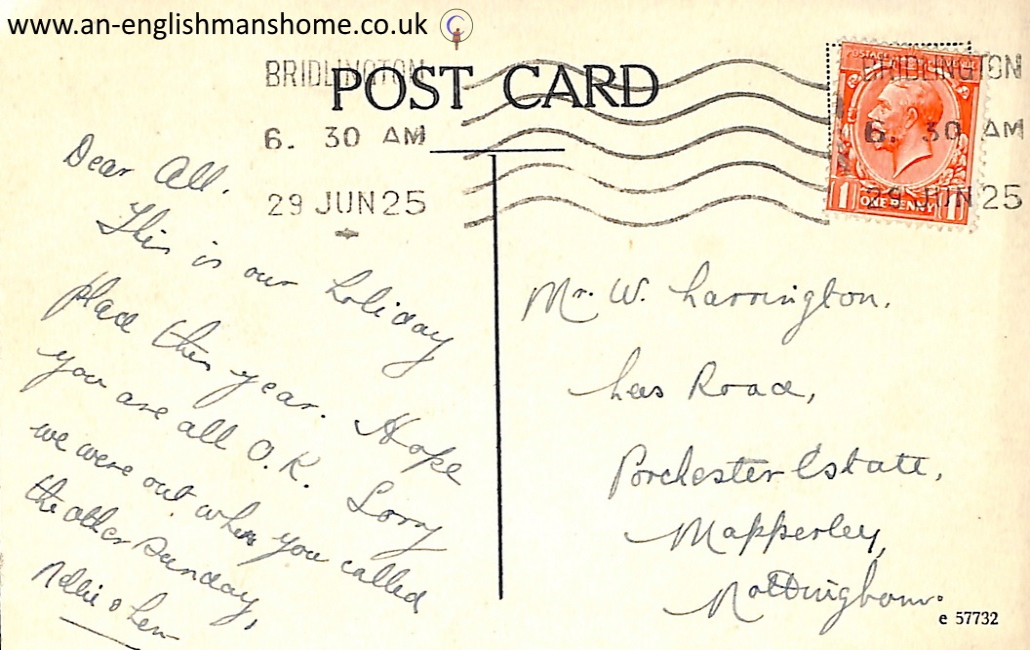 www.an-englishmanshome.co.uk
POST CARD
BRIDLINGTON
6. 30 AM
29 JUN 25
BRIDLINGTON
6. 30 AM
29 JUN 25
ONE PENNY
1 1
Dear All.
This is our holiday
place this year. Hope
you are all O.K. Sorry
we were out when you called
the other Sunday,
Nellie & Len
Mr. W. Larrington.
Lees Road,
Porchester Estate,
Mapperley,
Nottingham.
e 57732